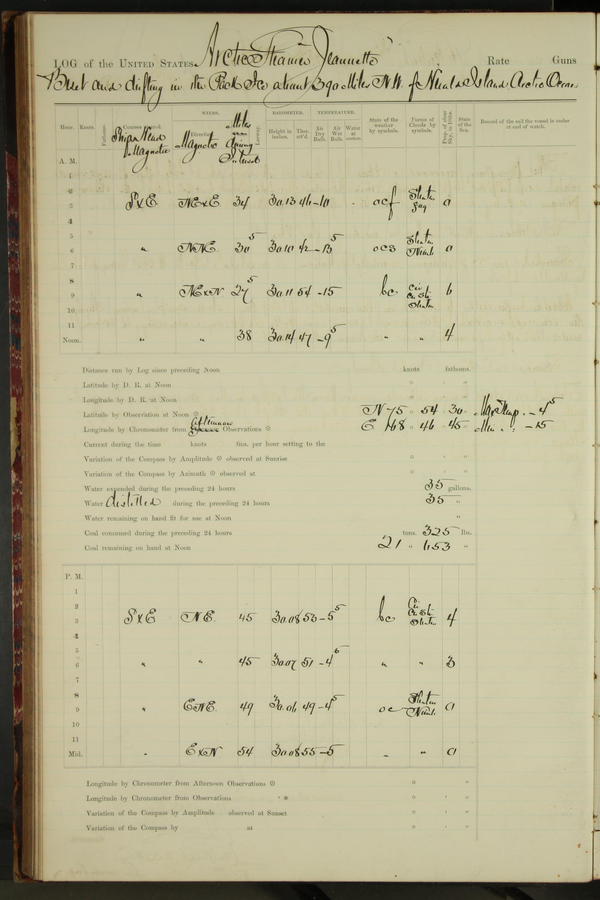 LOG of the UNITED STATES Arctic Steamer "Jeannette" Rate Guns
Beset and drifting in the Pack Ice about 390 Miles N.W. of Herald Island Arctic Ocean
Hour. Knots. Fathoms. Courses Ship's Head Magnetic WINDS. Direction Magnetic Miles during Interval Leeway. BAROMETER. Height in inches. Ther. att'd. TEMPERATURE. Air Dry Bulb. Air Wet Bulb. Water at surface. State of the weather by symbols. Forms of Clouds by symbols. Prop. of clear Sky, in 10ths. State of the Sea. Record of the sail the vessel is under at end of watch.
A. M.
1
2
3 SxE NExE 34 30.13 46 -10 ocf Stratus Fog 0
4
5
6 " NNE 30⁵ 30.10 42 -13⁵ ocs Stratus Nimb 0
7
8
9 " NExN 27⁵ 30.11 54 -15 bc Cir. Cir. Str. Stratus 6
10
11
Noon. " " 38 30.14 47 -9⁵ " " 4
Distance run by Log since preceding Noon knots fathoms.
Latitude by D. R. at Noon ° ' "
Longitude by D. R. at Noon ° ' "
Latitude by Observation at Noon N 75 ° 54 ' 30 " Max Temp. -4⁵
Longitude by Chronometer from Afternoon Observations E 168 ° 46 ' 45 " Min " -15
Current during the time knots fms. per hour setting to the
Variation of the Compass by Amplitude observed at Sunrise ° ' "
Variation of the Compass by Azimuth observed at ° ' "
Water expended during the preceding 24 hours 35 gallons.
Water distilled during the preceding 24 hours 35 "
Water remaining on hand fit for use at Noon "
Coal consumed during the preceding 24 hours tons. 325 lbs.
Coal remaining on hand at Noon 21 " 653 "
P. M.
1
2
3 SxE NE 45 30.08 53 -5⁵ bc Cir. Cir. Str. Stratus 4
4
5
6 " " 45 30.07 51 -4⁶ " " 3
7
8
9 " ENE 49 30.06 49 -4⁵ oc Stratus Nimb. 0
10
11
Mid. " ExN 54 30.08 55 -5 " " 0
Longitude by Chronometer from Afternoon Observations ° ' "
Longitude by Chronometer from Observations ° ' "
Variation of the Compass by Amplitude observed at Sunset ° ' "
Variation of the Compass by at ° ' "